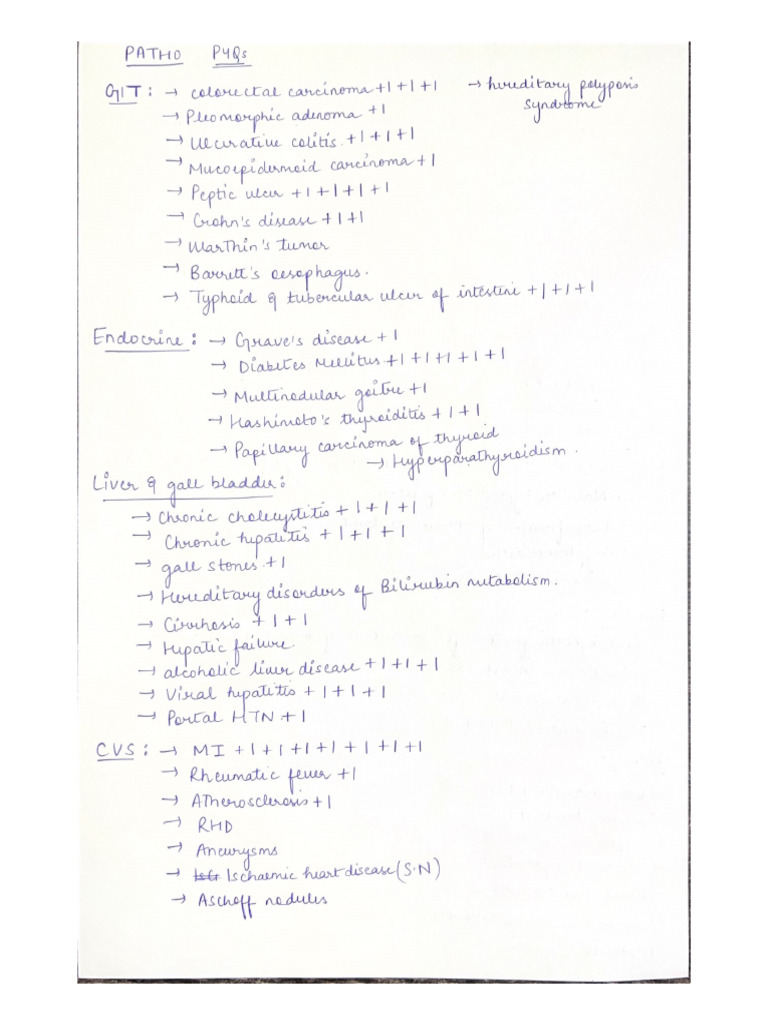 PATHO PYQs
GIT : → colorectal carcinoma +1 +1 +1 → hereditary polyposis
syndrome
→ Pleomorphic adenoma +1
→ Ulcerative colitis. +1 +1 +1
→ Mucoepidermoid carcinoma +1
→ Peptic ulcer +1 +1 +1 +1
→ Crohn's disease +1 +1
→ Warthin's tumor
→ Barrett's oesophagus.
→ Typhoid & tubercular ulcer of intestine +1 +1 +1
Endocrine : → Grave's disease +1
→ Diabetes Mellitus +1 +1 +1 +1 +1
→ Multinodular goitre +1
→ Hashimoto's thyroiditis +1 +1
→ Papillary carcinoma of thyroid
→ Hyperparathyroidism.
Liver & gall bladder :
→ Chronic cholecystitis +1 +1 +1
→ Chronic hepatitis +1 +1 +1
→ gall stones +1
→ Hereditary disorders of Bilirubin metabolism.
→ Cirrhosis +1 +1
→ Hepatic failure
→ alcoholic liver disease +1 +1 +1
→ Viral hepatitis +1 +1 +1
→ Portal HTN +1
CVS : → MI +1 +1 +1 +1 +1 +1 +1
→ Rheumatic fever +1
→ Atherosclerosis +1
→ RHD
→ Aneurysms
→ Ischaemic heart disease (S.N)
→ Aschoff nodules